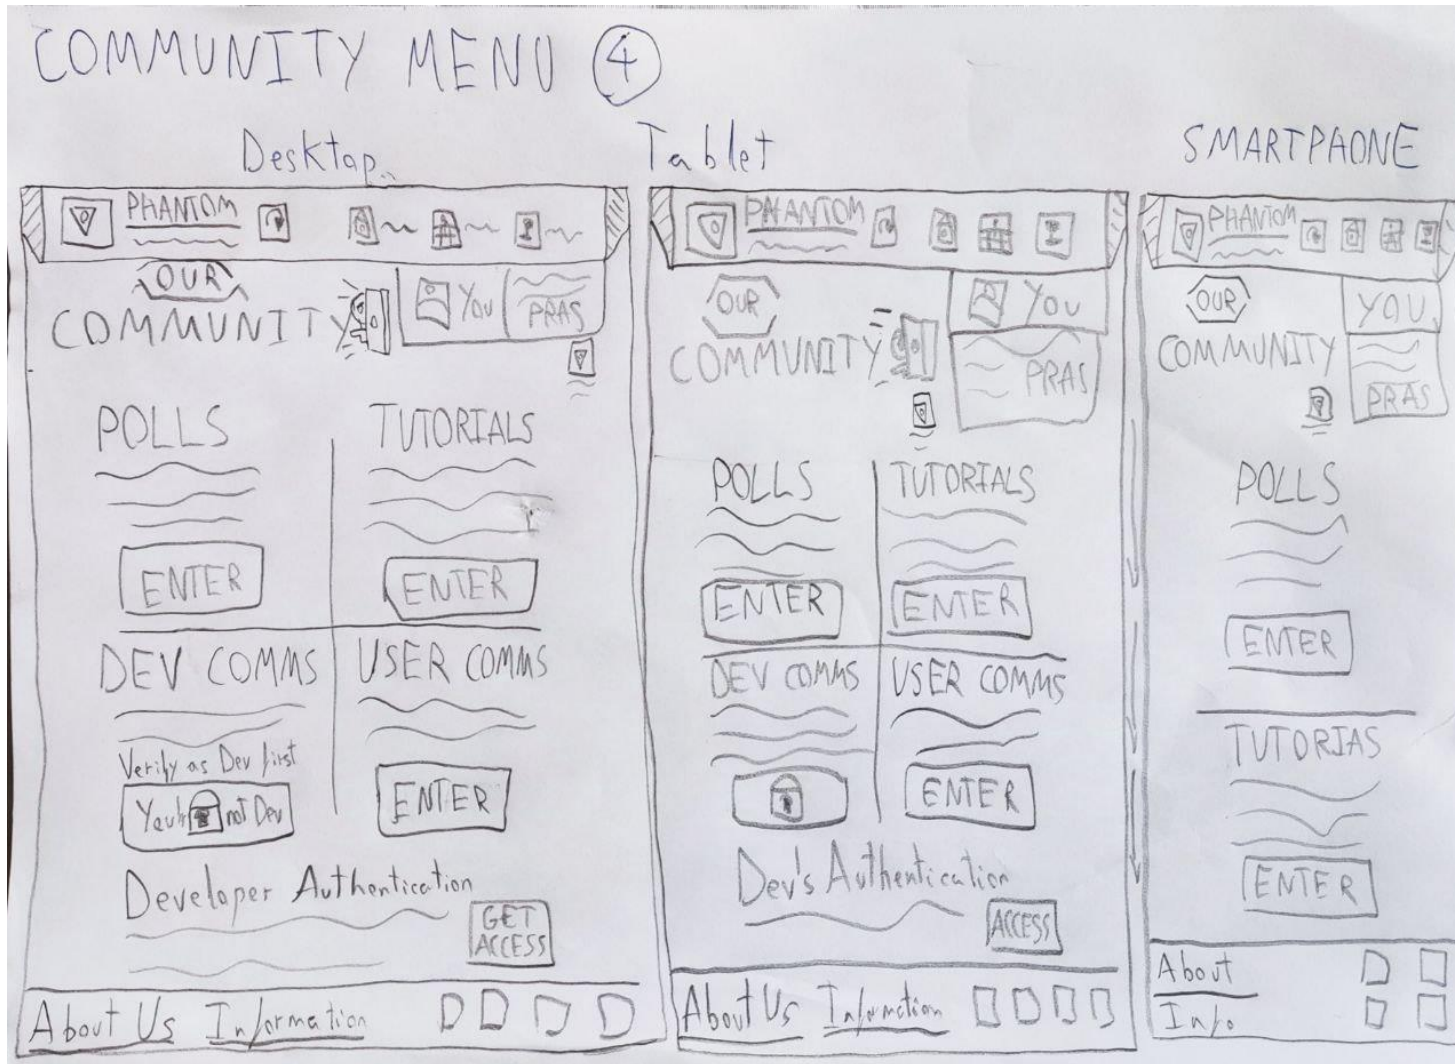 COMMUNITY MENU 4
Desktop
PHANTOM
OUR
COMMUNITY
You
PRAS
POLLS
TUTORIALS
ENTER
ENTER
DEV COMMS
USER COMMS
Verify as Dev first
not Dev
ENTER
Developer Authentication
GET
ACCESS
About Us Information
Tablet
PHANTOM
OUR
COMMUNITY
You
PRAS
POLLS
TUTORIALS
ENTER
ENTER
DEV COMMS
USER COMMS
ENTER
Dev's Authentication
ACCESS
About Us Information
SMARTPHONE
PHANTOM
OUR
COMMUNITY
YOU
PRAS
POLLS
ENTER
TUTORIAS
ENTER
About
Info